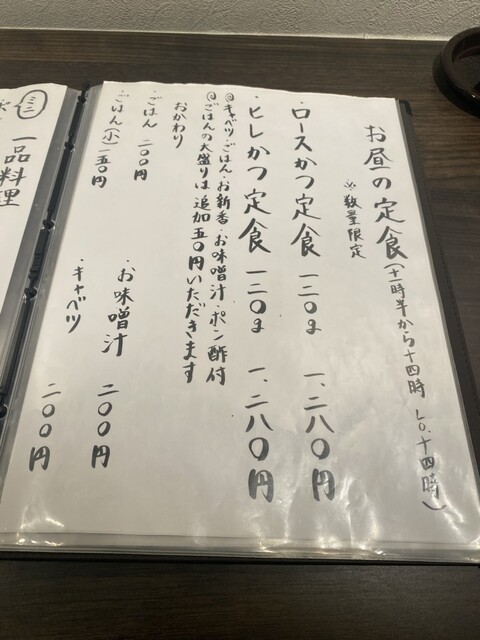 お昼の定食(十一時半から十四時 L.O.十四時)
※数量限定
・ロースかつ定食 一二〇g 一、二八〇円
・ヒレかつ定食 一二〇g 一、二八〇円
@キャベツ・ごはん・お新香・お味噌汁・ポン酢付
@ごはんの大盛りは追加五〇円いただきます
おかわり
・ごはん 二〇〇円
・ごはん(小)一五〇円
・お味噌汁 二〇〇円
・キャベツ 二〇〇円
ミニ一品料理